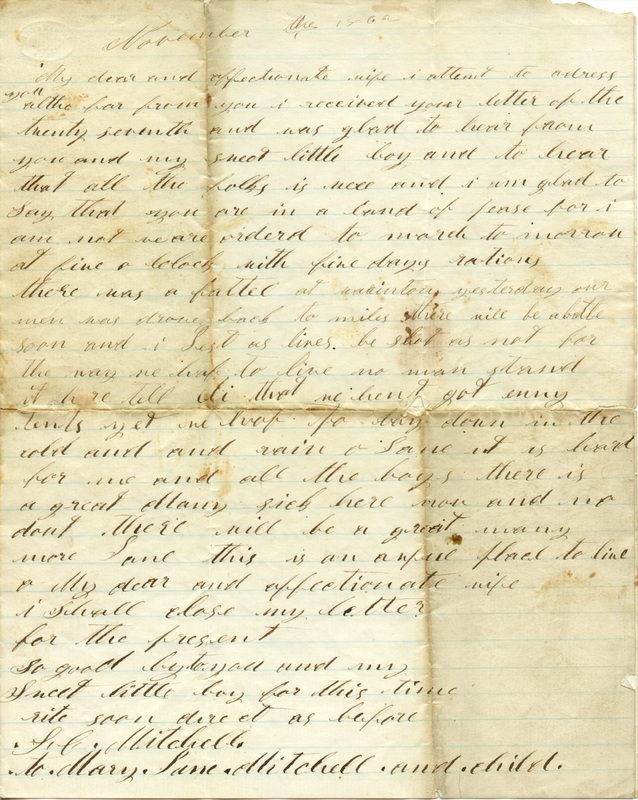 November the 1862
My dear and affectionate wife i attemt to adress
you
altho far from you i received your letter of the
twenty seventh and was glad to hear from
you and my sweet little boy and to hear
that all the folks is well and i am glad to
Say that you are in a land of pease for i
am not we are orderd to march to morrow
at five o clock with five days rations
there was a battel at yesterday our
men was drove back to miles there will be a battle
soon and i Just as lives be shot as not for
the way we haf to live no man stand
it here tell di that we hent got enny
tents yet we haf to lay down in the
cold and and rain o Jane it is hard
for me and all the boys there is
a great Many sick here now and no
dout there will be a great many
more Jane this is an awful place to live
o My dear and affectionate wife
i Shall close my letter
for the present
So good by to you and my
Sweet little boy for this time
rite soon direct as before
Mitchell
to Mary Jane Mitchell and child.